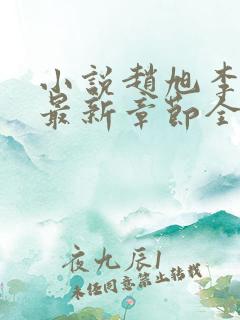 小說趙旭李
最新章節全
夜九辰1
未经同意禁止转载